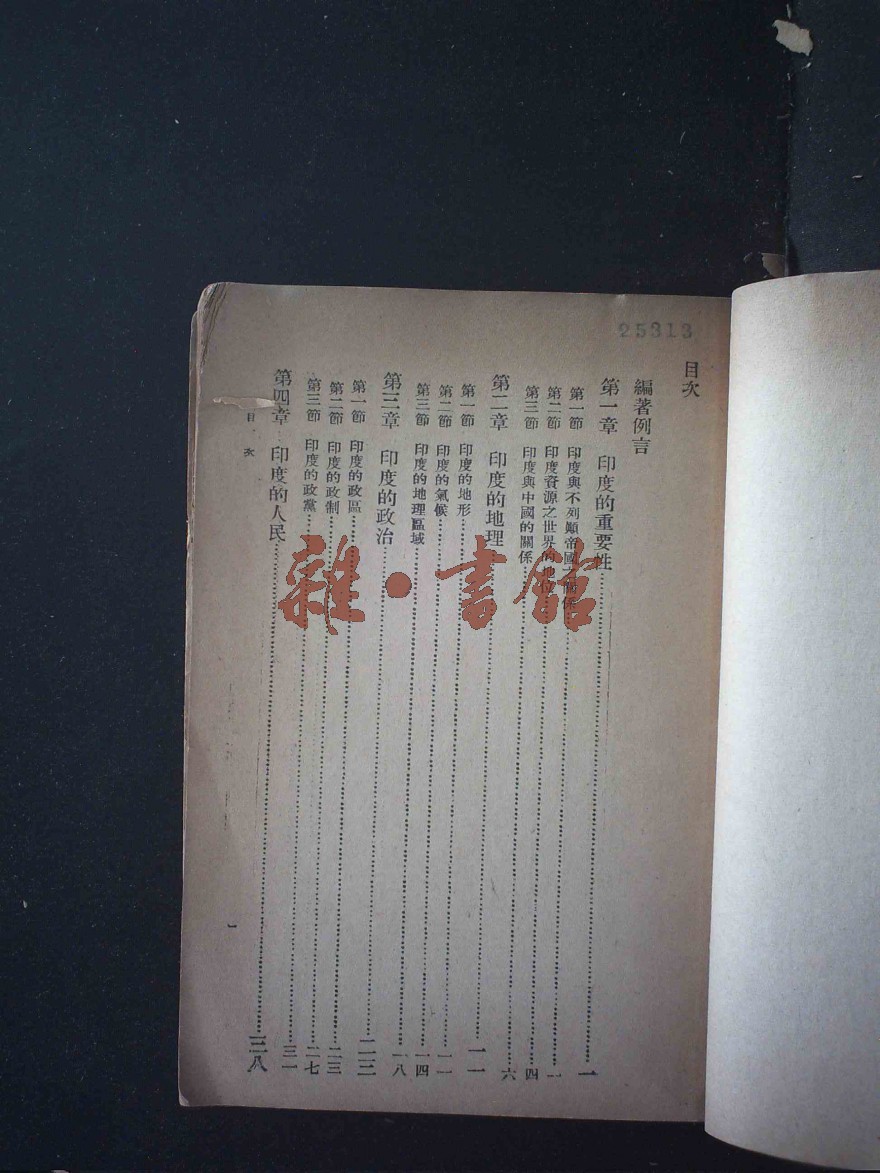 25313
目次
編著例言
第一章 印度的重要性……一
第一節 印度與不列顚帝國之關係……一
第二節 印度資源之世界的地位……四
第三節 印度與中國的關係……六
第二章 印度的地理……一一
第一節 印度的地形……一一
第二節 印度的氣候……一四
第三節 印度的地理區域……一八
第三章 印度的政治……二三
第一節 印度的政區……二三
第二節 印度的政制……二七
第三節 印度的政黨……三一
第四章 印度的人民……三八
目次
一
雜·書館